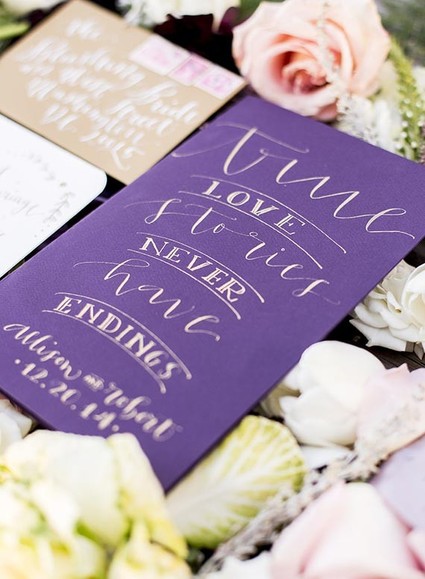 The
Bride
true
LOVE
stories
NEVER
have
ENDINGS
allison and robert
.12.20.14.